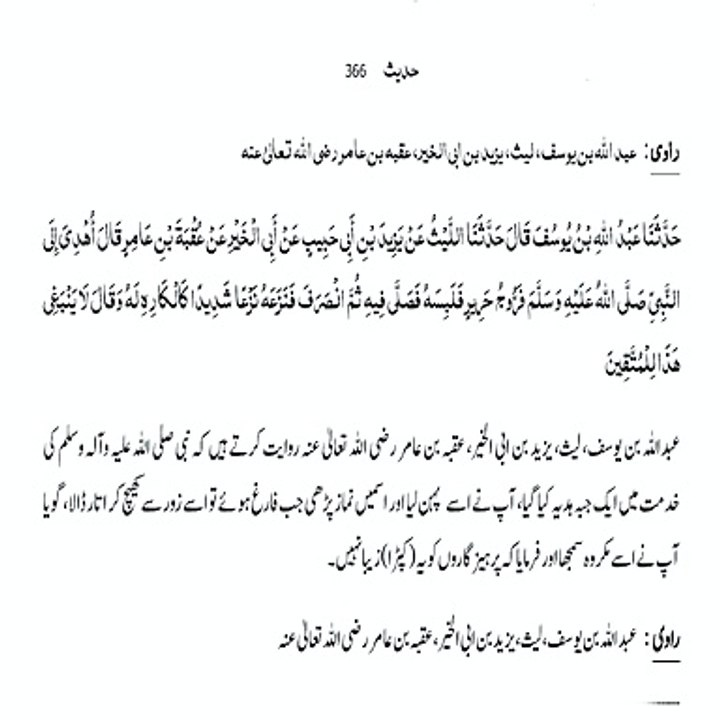 حدیث 366
راوی: عبد اللہ بن یوسف، لیث، یزید بن ابی الخیر، عقبہ بن عامر رضی اللہ تعالیٰ عنہ
حَدَّثَنَا عَبْدُ اللهِ بْنُ يُوسُفَ قَالَ حَدَّثَنَا اللَّيْثُ عَنْ يَزِيدَ بْنِ أَبِي حَبِيبٍ عَنْ أَبِي الْخَيْرِ عَنْ عُقْبَةَ بْنِ عَامِرٍ قَالَ أُهْدِيَ إِلَى
النَّبِيِّ صَلَّى اللهُ عَلَيْهِ وَسَلَّمَ فَرُّوجُ حَرِيرٍ فَلَبِسَهُ فَصَلَّى فِيهِ ثُمَّ انْصَرَفَ فَنَزَعَهُ نَزْعًا شَدِيدًا كَالْكَارِهِ لَهُ وَقَالَ لَا يَنْبَغِي
هَذَا لِلْمُتَّقِينَ
عبد اللہ بن یوسف، لیث، یزید بن ابی الخیر، عقبہ بن عامر رضی اللہ تعالیٰ عنہ روایت کرتے ہیں کہ نبی صلی اللہ علیہ وآلہ وسلم کی
خدمت میں ایک جبہ ہدیہ کیا گیا، آپ نے اسے پہن لیا اور اسمیں نماز پڑھی جب فارغ ہوئے تو اسے زور سے کھینچ کر اتار ڈالا، گویا
آپ نے اسے مکروہ سمجھا اور فرمایا کہ پرہیز گاروں کو یہ (کپڑا) زیبا نہیں۔
راوی: عبد اللہ بن یوسف، لیث، یزید بن ابی الخیر، عقبہ بن عامر رضی اللہ تعالیٰ عنہ